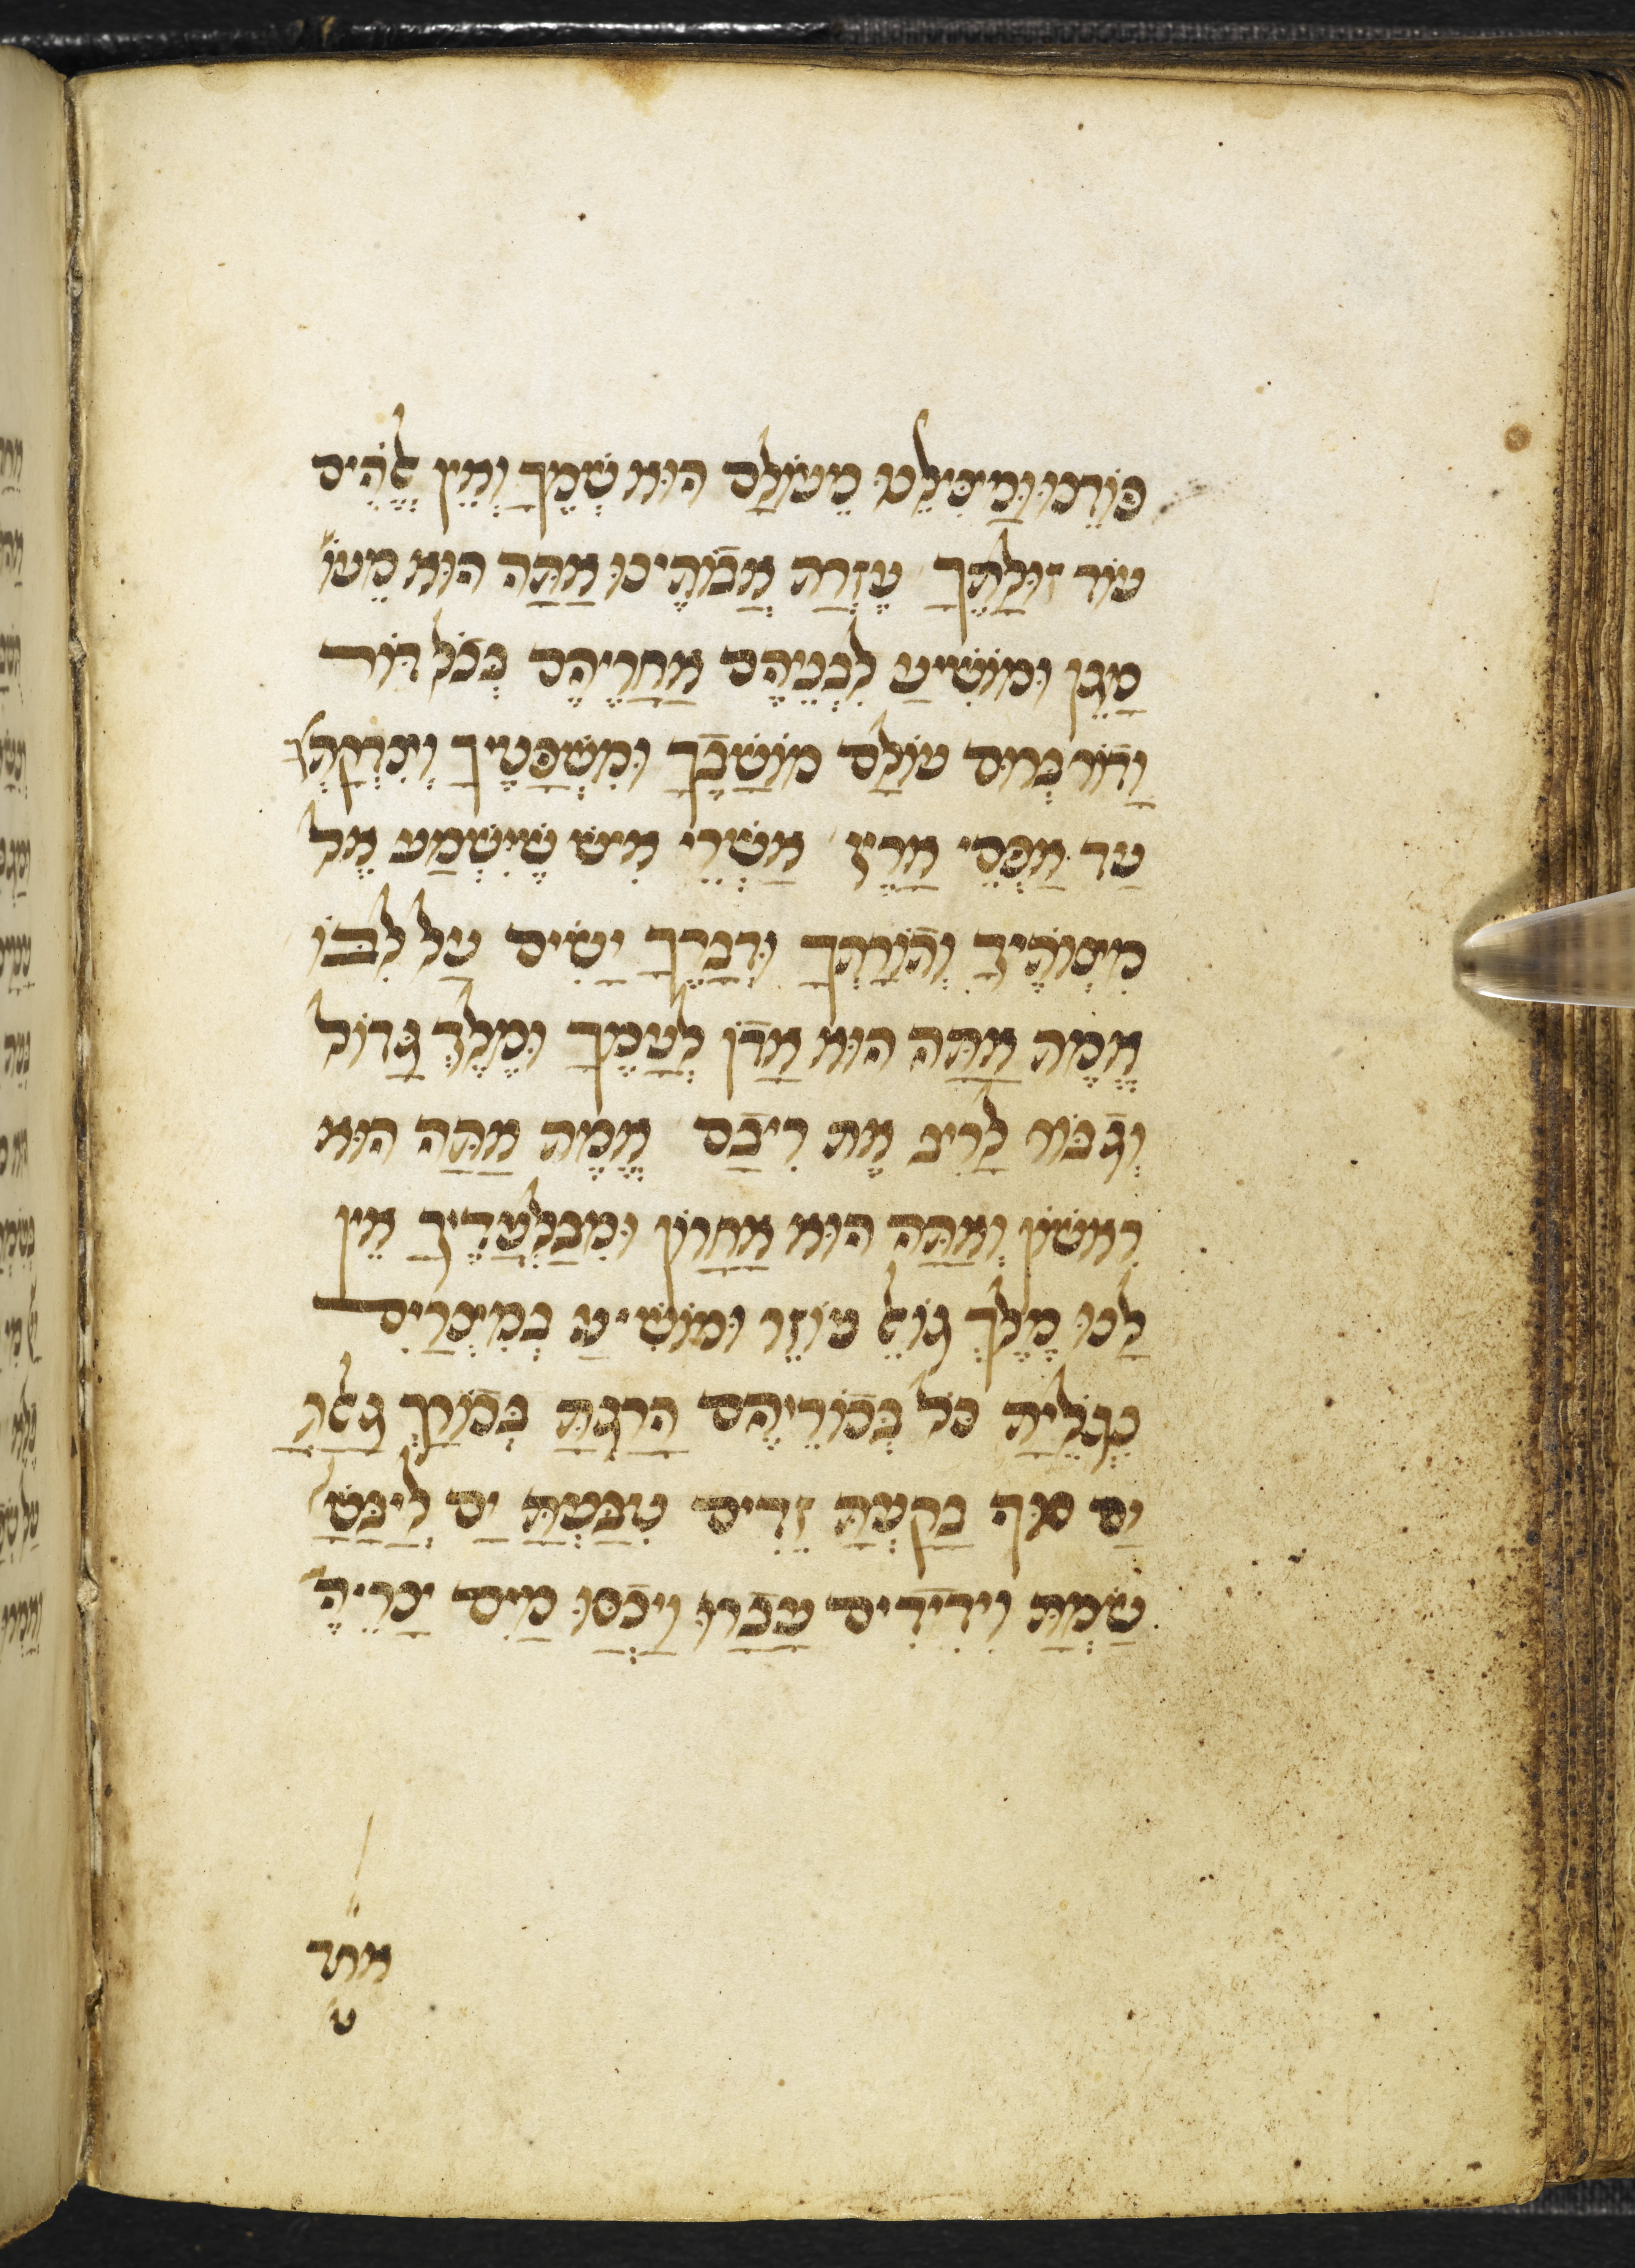 פודנו ומצילנו מעולם הוא שמך ואין אלהים
עוד זולתך עזרת אבותינו אתה הוא מעו
מגן ומושיע לבניהם אחריהם בכל דור
ודור ברום עולם מושבך ומשפטיך וצדקתך
עד אפסי ארץ אשרי איש שישמע אל
מצותיך ותורתך ודברך ישים על לבו
אמת אתה הוא אדון לעמך ומלך גדול
וגבור לריב את ריבם אמת אתה הוא
ראשון ואתה הוא אחרון ומבלעדיך אין
לנו מלך גואל עוזר ומושיע במצרים
נגלית כל בכוריהם הרגת בכורך גאלת
ים סוף בקעת זדים טבעת ים ליבשה
שמת וידידים עברו ויכסו מים צריה
אחד
ט